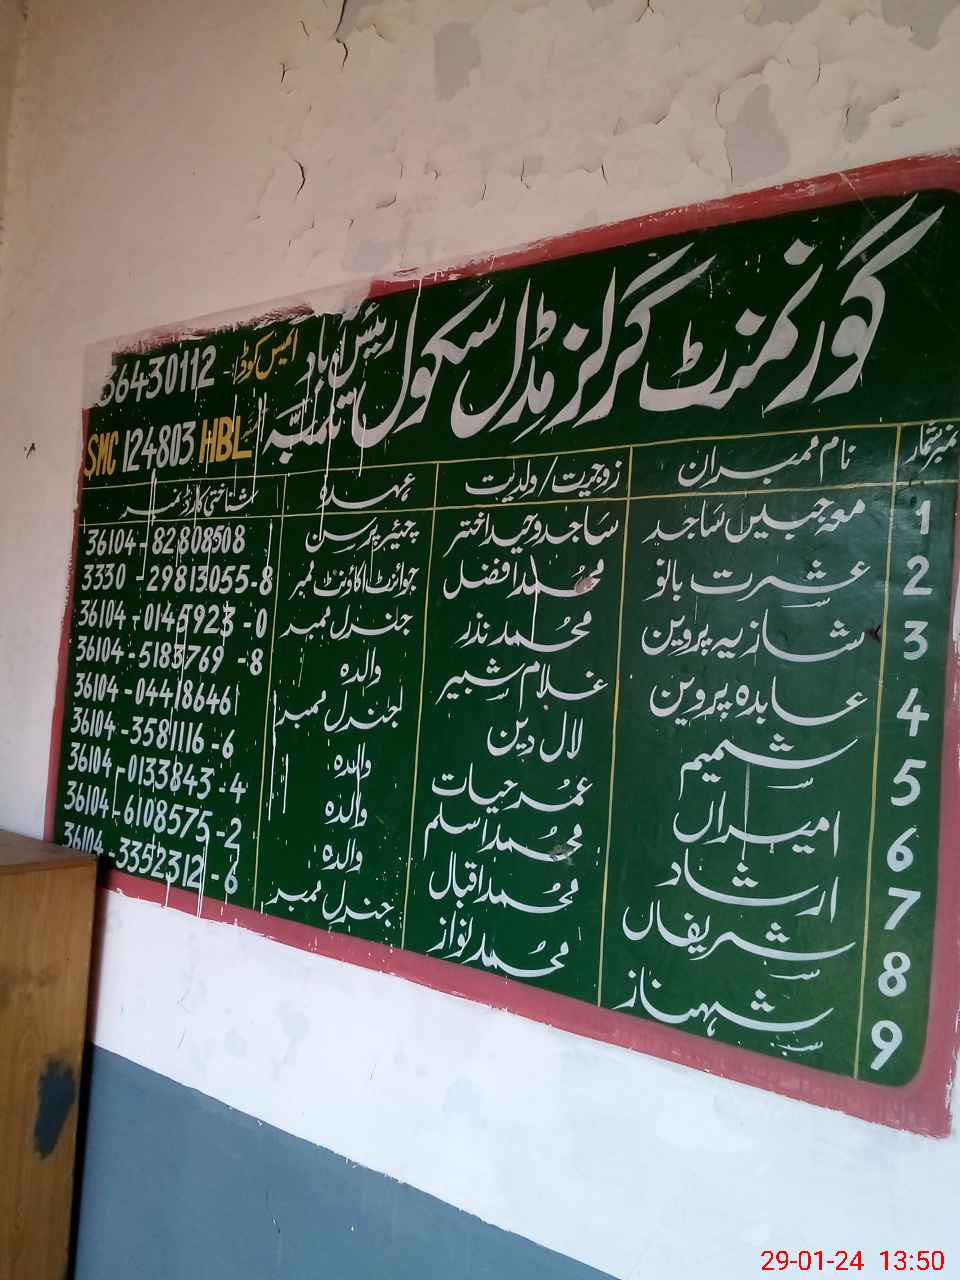 گورنمنٹ گرلز مڈل سکول رئیس باد تلمبہ
ایمس کوڈ - 36430112
SMC 124803 HBL
نمبر شمار نام ممبران زوجیت/ولدیت عہدہ شناختی کارڈ نمبر
1 مہ جبیں ساجد ساجد وحید اختر چیئر پرسن 36104-82808508
2 عشرت بانو محمد افضل جوائنٹ اکاؤنٹ ممبر 3330-29813055-8
3 شازیہ پروین محمد نذر جنرل ممبر 36104-0145923-0
4 عابدہ پروین غلام شبیر والدہ 36104-5183769-8
5 شمیم لال دین جنرل ممبر 36104-04418646
6 امیراں عمر حیات والدہ 36104-3581116-6
7 ارشاد محمد اسلم والدہ 36104-0133843-4
8 شریفاں محمد اقبال والدہ 36104-6108575-2
9 شہناز محمد نواز جنرل ممبر 36104-3352312-6
29-01-24 13:50